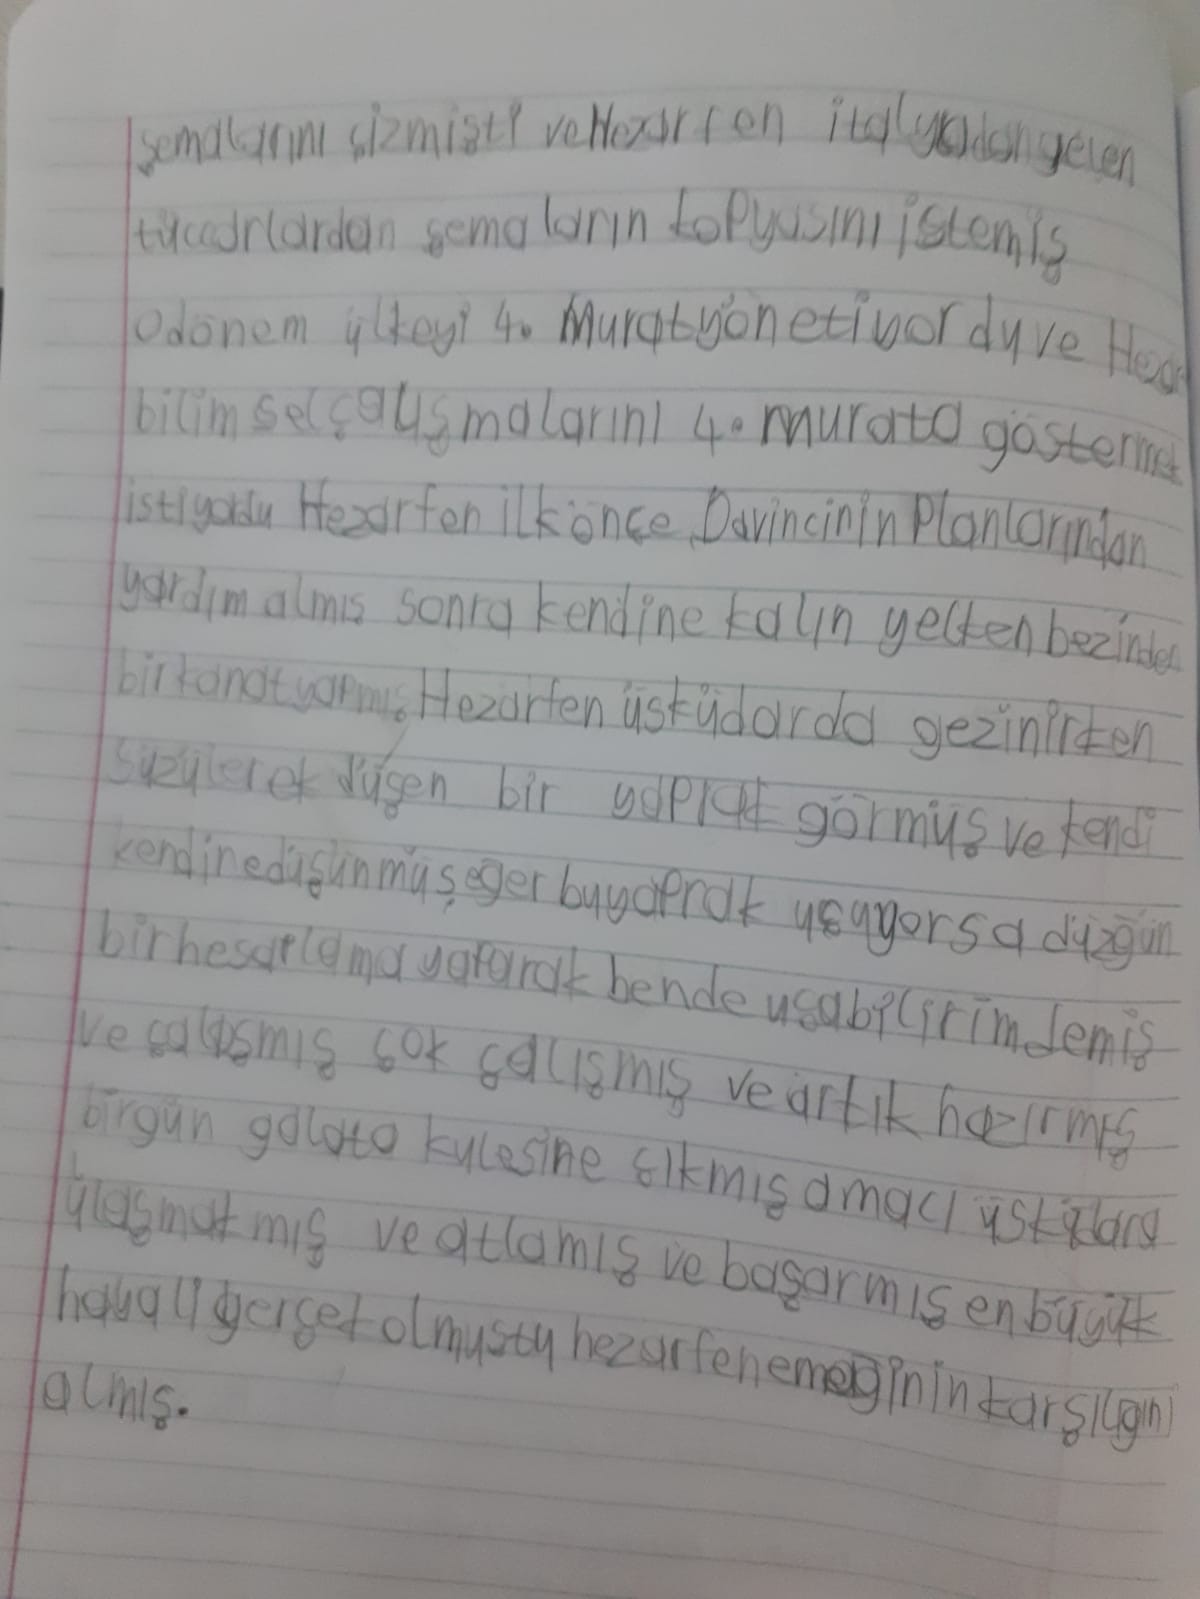 şemalarını çizmişti ve Hezarfen italyadan gelen
tüccarlardan şemaların kopyasını istemiş
O dönem ülkeyi 4. Murat yönetiyordu ve Heza
bilimsel çalışmalarını 4. murata göstermek
istiyordu Hezarfen ilk önçe Davincinin Planlarından
yardım almıs sonra kendine kalın yelken bezinden
bir kanat yapmış Hezarfen üsküdarda gezinirken
süzülerek düşen bir yaprak görmüş ve kendi
kendine düşünmüş eğer bu yaprak uçuyorsa düzgün
bir hesaplama yaparak bende uçabilirim demiş
ve çalışmış çok çalışmış ve artık hazırmış
birgün galata kulesine çıkmış amacı üsküdara
ulaşmakmış ve atlamış ve başarmış en büyük
hayali gerçek olmustu hezarfen emeğinin karşılığını
almış.